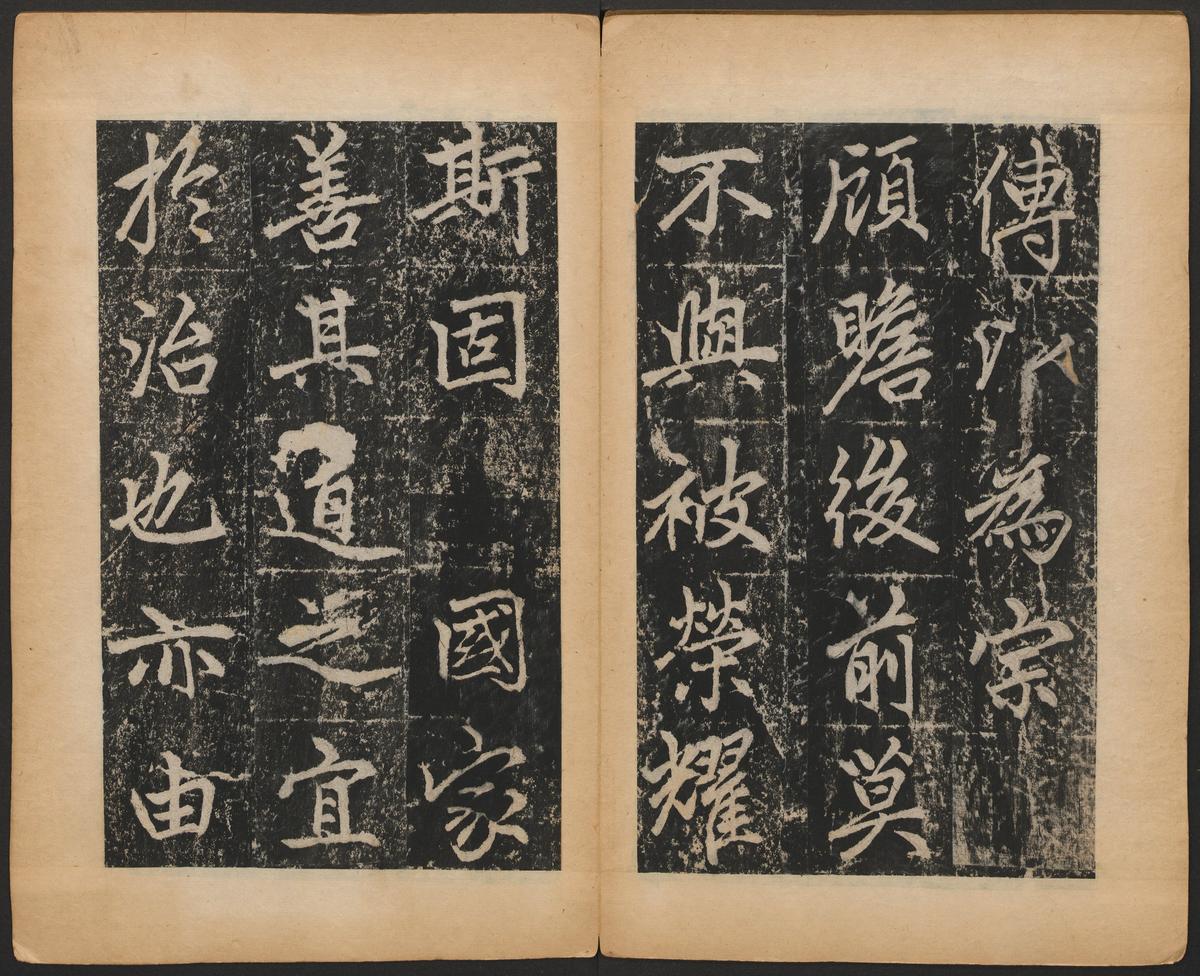 傳以為宗
顧瞻後前莫
不與被榮耀
斯固國家
善其道之宜
於治也亦由